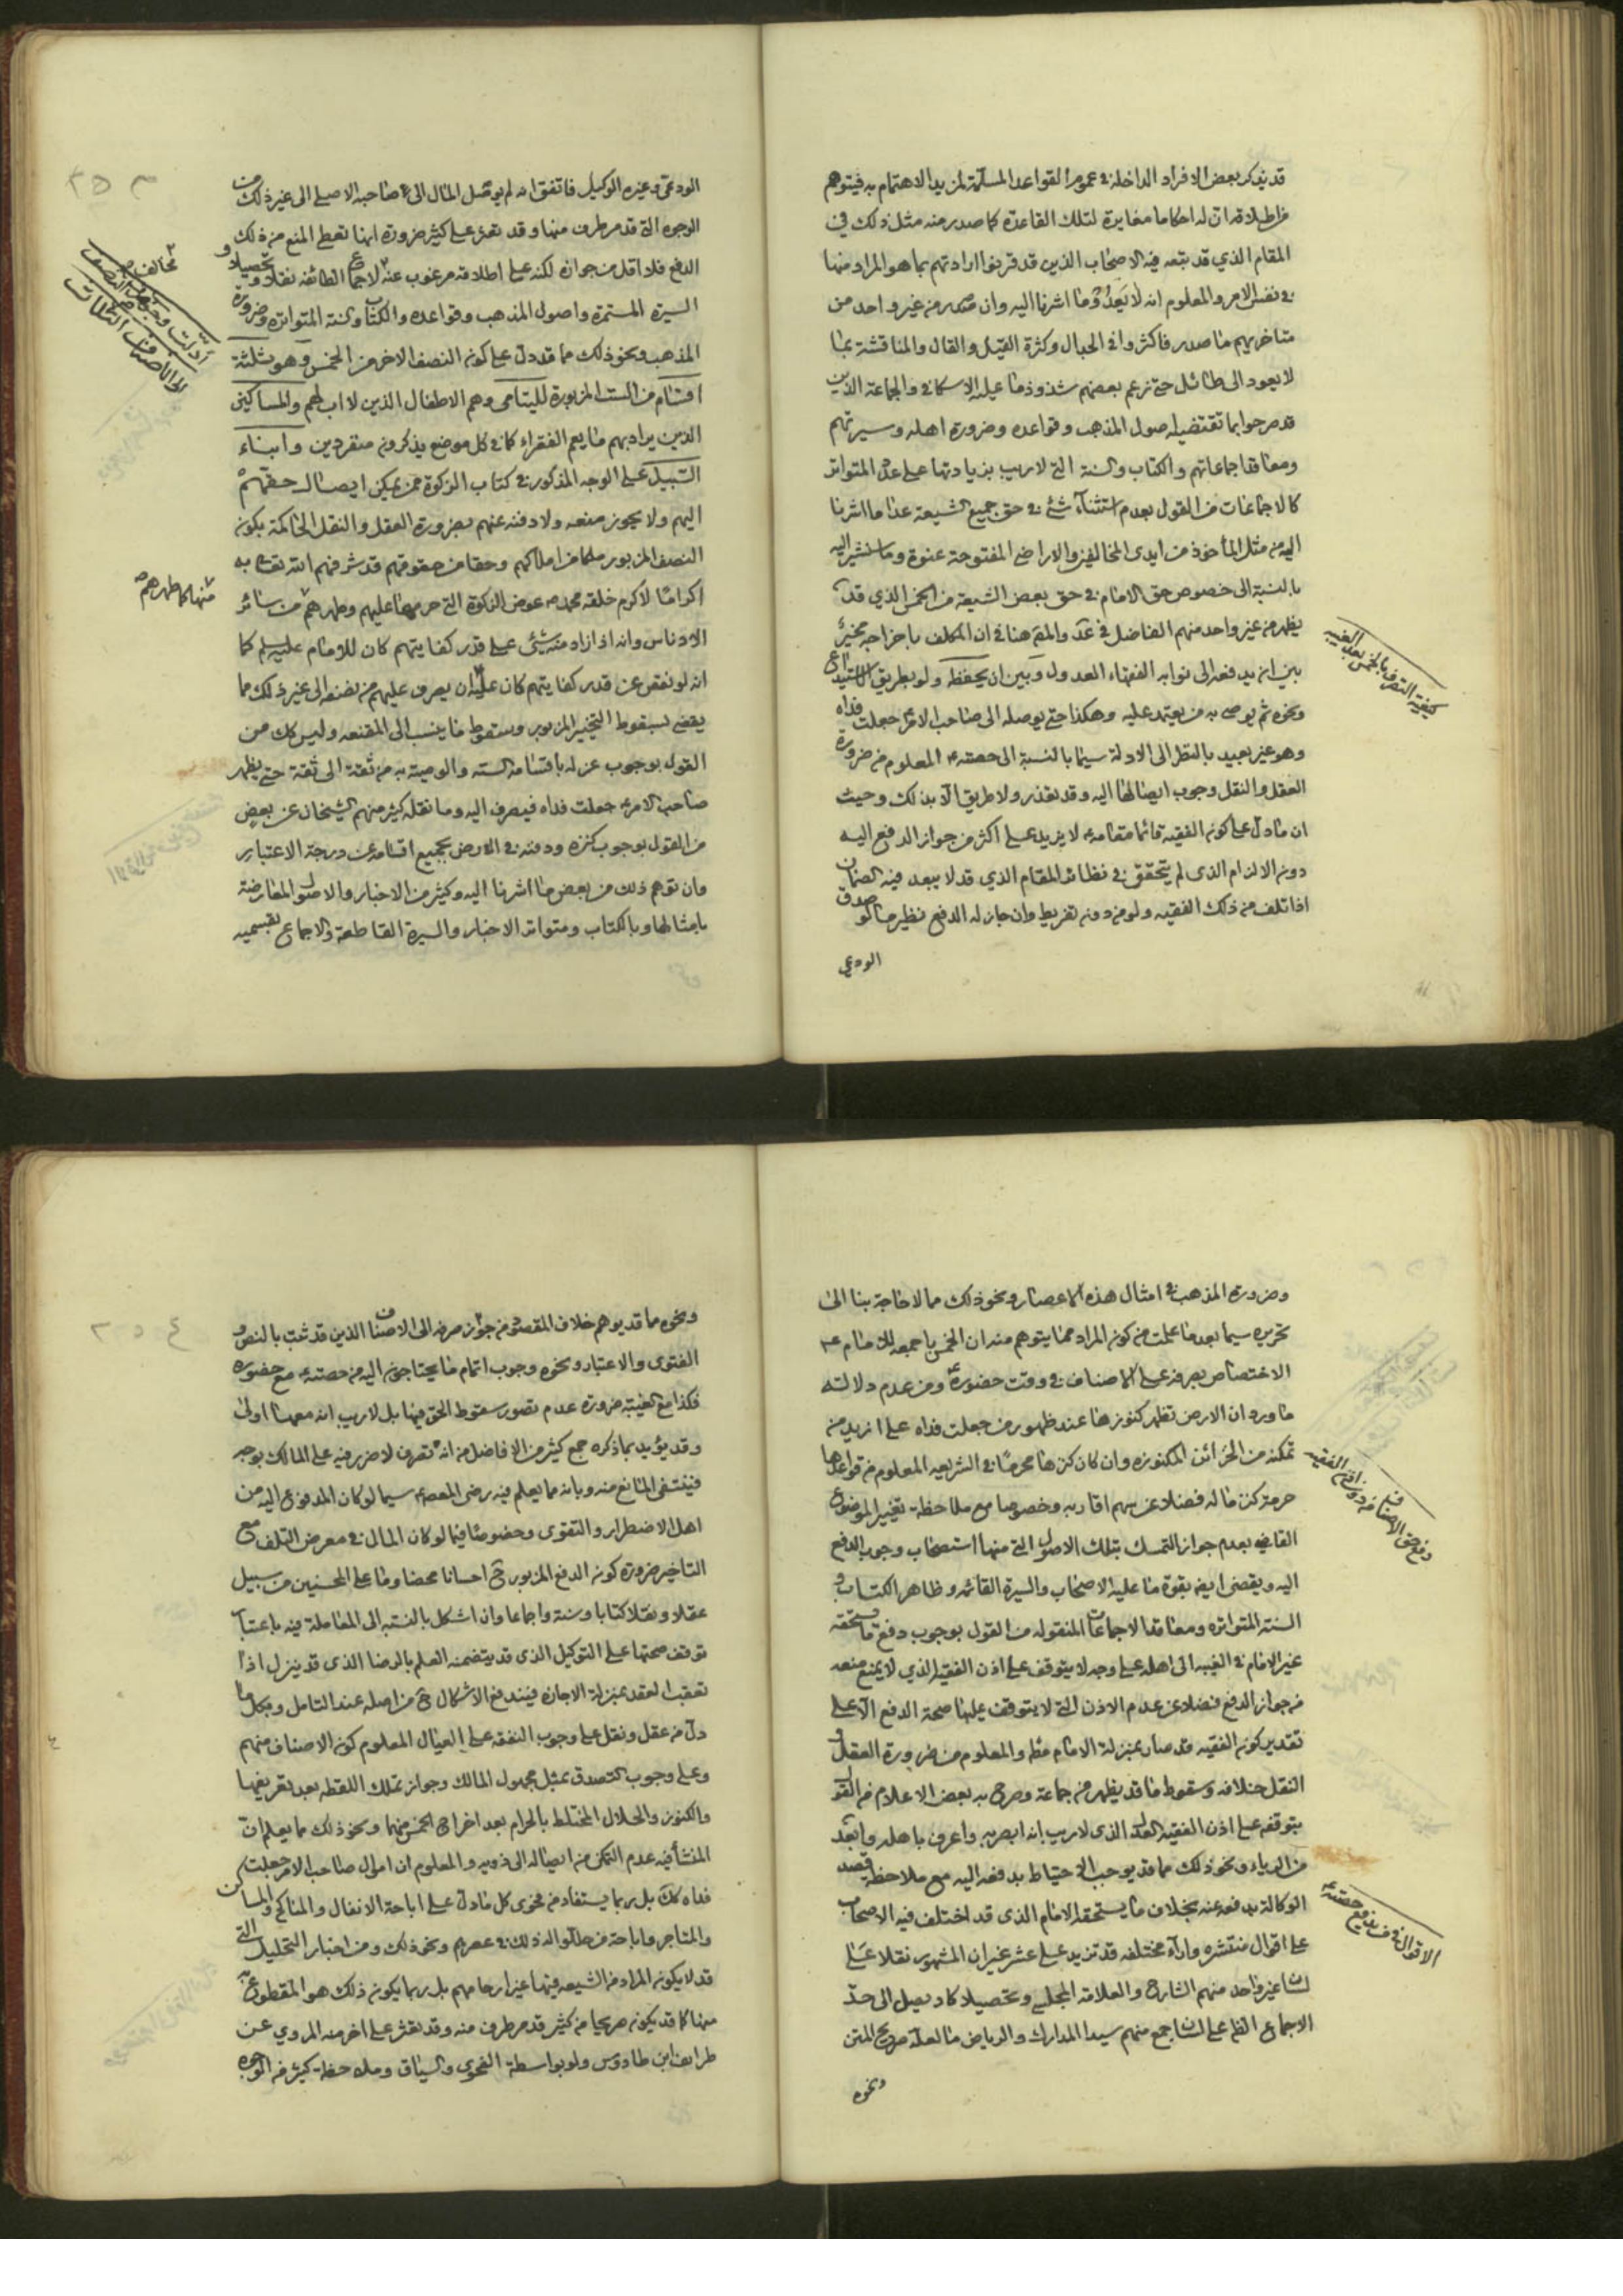 قد يذكر بعض الافراد الداخلة في عموم القواعد المسلمة لمزيد الاهتمام به فيتوهم
من اطلاقه ان له احكاما مغايرة لتلك القاعدة كما صدر منه مثل ذلك في
المقام الذي قد تبعه فيه الاصحاب الذين قد قرنوا ارادتهم بما هو المراد منها
في نفس الامر والمعلوم انه لا يعدو ما اشرنا اليه وان صدر من غير واحد من
متاخريهم ما صدر فاكثروا في الجدال وكثرة القيل والقال والمناقشة بما
لا يعود الى طائل حتى زعم بعضهم شذوذ ما عليه الاسكافي والجماعة الذين
قد صرحوا بما تقتضيه اصول المذهب وقواعده وضرورة اهله وسيرتهم
ومعاقد اجماعاتهم والكتاب والسنة التي لا ريب بزيادتها على عدد المتواتر
كالاجماعات من القول بعدم استثناء شئ في حق جميع الشيعة عدا ما اشرنا
اليه من مثل المأخوذ من ايدى المخالفين والاراضي المفتوحة عنوة وما سنشير اليه
بالنسبة الى خصوص حق الامام في حق بعض الشيعة من الخمس الذي قد
يظهر من غير واحد منهم الفاضل في عد والمقم هنا في ان المكلف باخراجه مخير
بين ان يدفعه الى نوابه الفقهاء العدول وبين ان يحفظه ولو بطريق الاستيداع
ونحوه ثم يوصى به من يعتمد عليه وهكذا حتى يوصله الى صاحب الامر جعلت فداه
وهو غير بعيد بالنظر الى الادلة سيما بالنسبة الى حصته المعلوم من ضرورة
العقل والنقل وجوب ايصالها اليه وقد تعذر ولا طريق الا بذلك وحيث
ان ما دل على كون الفقيه قائما مقامه لا يزيد على اكثر من جواز الدفع اليه
دون الالزام الذى لم يتحقق في نظائر المقام الذي قد لا يبعد فيه الضمان
اذا تلف من ذلك الفقيه ولو من دون تفريط وان جاز له الدفع نظير ما لو صدق
الودعي
كيفية التصرف بالخمس بعد الغيبة
الودعى وغيره الوكيل فاتفق انه لم يوصل المال الى صاحبه الاصلي الى غير ذلك من
الوجوه التي قد مر طرف منها وقد تعثر على كثير ضرورة انها تعطي المنع من ذلك
الدفع فلا اقل من جوازه لكنه على اطلاقه مرغوب عنه لاجماع الطائفة نقلا وتحصيلا و
السيرة المستمرة واصول المذهب وقواعده والكتاب والسنة المتواترة وضرورة
المذهب ونحو ذلك مما قد دل على كون النصف الاخر من الخمس وهو ثلثة
اقسام من الستة المزبورة لليتامى وهم الاطفال الذين لا اب لهم والمساكين
الذين يراد بهم ما يعم الفقراء كما في كل موضع يذكرون منفردين وابناء
السبيل على الوجه المذكور في كتاب الزكوة ممن يمكن ايصال حقهم
اليهم ولا يجوز منعه ولا دفنه عنهم بضرورة العقل والنقل الحاكمة بكون
النصف المزبور ملكا من املاكهم وحقا من حقوقهم قد شرفهم الله تعالى به
اكراما لاكرم خلقه محمد ص عوض الزكوة التي حرمها عليهم وطهرهم من سائر
الادناس وانه اذا زاد منه شئ على قدر كفايتهم كان للامام عليه السلم كما
انه لو نقص عن قدر كفايتهم كان عليه ان يصرف عليهم من نصفه الى غير ذلك مما
يقضي بسقوط التخيير المزبور وسقوط ما ينسب الى المقنعه وليس كك من
القول بوجوب عزله باقسامه الستة والوصية به من ثقة الى ثقة حتى يظهر
صاحب الامر جعلت فداه فيصرف اليه وما نقله كثير منهم الشيخان عن بعض
من القول بوجوب كنزه ودفنه في الارض بجميع اقسامه عن درجة الاعتبار
وان توهم ذلك من بعض ما اشرنا اليه وكثير من الاخبار والاصول المعارضة
بامثالها وبالكتاب ومتواتر الاخبار والسيرة القاطعة والاجماع بقسميه
منها كما طهرهم
٢٥٣
وضرورة المذهب في امثال هذه الاعصار ونحو ذلك مما لا حاجة بنا الى
تحريره سيما بعد ما علمت من كون المراد مما يتوهم منه ان الخمس باجمعه للامام ع
الاختصاص بصرفه على الاصناف في وقت حضوره ومن عدم دلالته
ما ورد ان الارض تظهر كنوزها عند ظهور من جعلت فداه على ازيد من
تمكنه من الخزائن المكنوزه وان كان كنزها محرما في الشريعه المعلوم من قواعدها
حرمة كنز ماله فضلا عن سهم اقاربه وخصوصا مع ملاحظة تغيير الموضوع
القاضي بعدم جواز التمسك بتلك الاصول التي منها استصحاب وجوب الدفع
اليه ويقضى ايض بقوة ما عليه الاصحاب والسيرة القائمه وظاهر الكتاب و
السنة المتواتره ومعاقد الاجماعات المنقوله من القول بوجوب دفع ما يستحقه
غير الامام في الغيبه الى اهله على وجه لا يتوقف على اذن الفقيه الذي لا يمنع منعه
من جواز الدفع فضلا عن عدم الاذن التي لا يتوقف عليها صحة الدفع الا على
تقدير كون الفقيه قد صار بمنزلة الامام مطلقا والمعلوم من ضرورة العقل و
النقل خلافه وسقوط ما قد يظهر من جماعة وصرح به بعض الاعلام من القول
بتوقفه على اذن الفقيه العدل الذى لا ريب انه ابصر به واعرف باهله وابعد
من الرياء ونحو ذلك مما قد يوجب الاحتياط بدفعه اليه مع ملاحظة قصد
الوكالة بدفعه عنه بخلاف ما يستحقه الامام الذى قد اختلف فيه الاصحاب
على اقوال منتشره وآراء مختلفه قد تزيد على عشر غير ان المشهور نقلا على
لسان غير واحد منهم الشارح والعلامه المجلسي وتحصيلا كاد يصل الى حد
الاجماع الظم على لسان جمع منهم سيدا المدارك والرياض ما لعله صريح المتن
ونحوه
دفع حق الاصناف من دون اذن الفقيه
الاقوال في من يدفع حصته
ونحوه مما قد يوهم خلاف المقصود من جواز صرفه الى الاصناف الذين قد ثبت بالنص و
الفتوى والاعتبار ونحوه وجوب اتمام ما يحتاجون اليه من حصته مع حضوره
فكذا مع الغيبة ضرورة عدم تصور سقوط الحق فيها بل لا ريب انه معها اولى
وقد يؤيد بما ذكره جمع كثير من الافاضل من انه تصرف لا ضرر فيه على المالك بوجه
فينتفى المانع منه وبانه مما يعلم فيه رضى المعصوم سيما لو كان المدفوع اليه من
اهل الاضطرار والتقوى وخصوصا فيما لو كان المال في معرض التلف مع
التاخير ضرورة كون الدفع المزبور ح احسانا محضا وما على المحسنين من سبيل
عقلا ونقلا كتابا وسنة واجماعا وان اشكل بالنسبه الى المعاملة فيه باعتبار
توقف صحتها على التوكيل الذى قد يتضمنه العلم بالرضا الذى قد ينزل اذا
تعقب العقد بمنزلة الاجازه فيندفع الاشكال ح من اصله عند التامل وبكل ما
دل من عقل ونقل على وجوب النفقه على العيال المعلوم كون الاصناف منهم
وعلى وجوب التصدق بمثل مجهول المالك وجواز تملك اللقطه بعد تعريفها
والكنوز والحلال المختلط بالحرام بعد اخراج الخمس منها ونحو ذلك مما يعلم ان
المنشأ فيه عدم التمكن من ايصاله الى ذويه والمعلوم ان اموال صاحب الامر جعلت
فداه كك بل ربما يستفاد من فحوى كل ما دل على اباحة الانفال والمناكح والمساكن
والمتاجر واباحة من حللوا له ذلك في عصرهم ونحو ذلك ومن اخبار التحليل التي
قد لا يكون المراد من الشيعه فيها غير ارحامهم بل ربما يكون ذلك هو المقطوع به
منها كما قد يكون صريحا من كثير قد مر طرف منه وقد تعثر على اخر منه المروي عن
طرائف ابن طاووس ولو بواسطة الفحوى والسياق وملاحظة كثير من الوجوه
٢٥٤